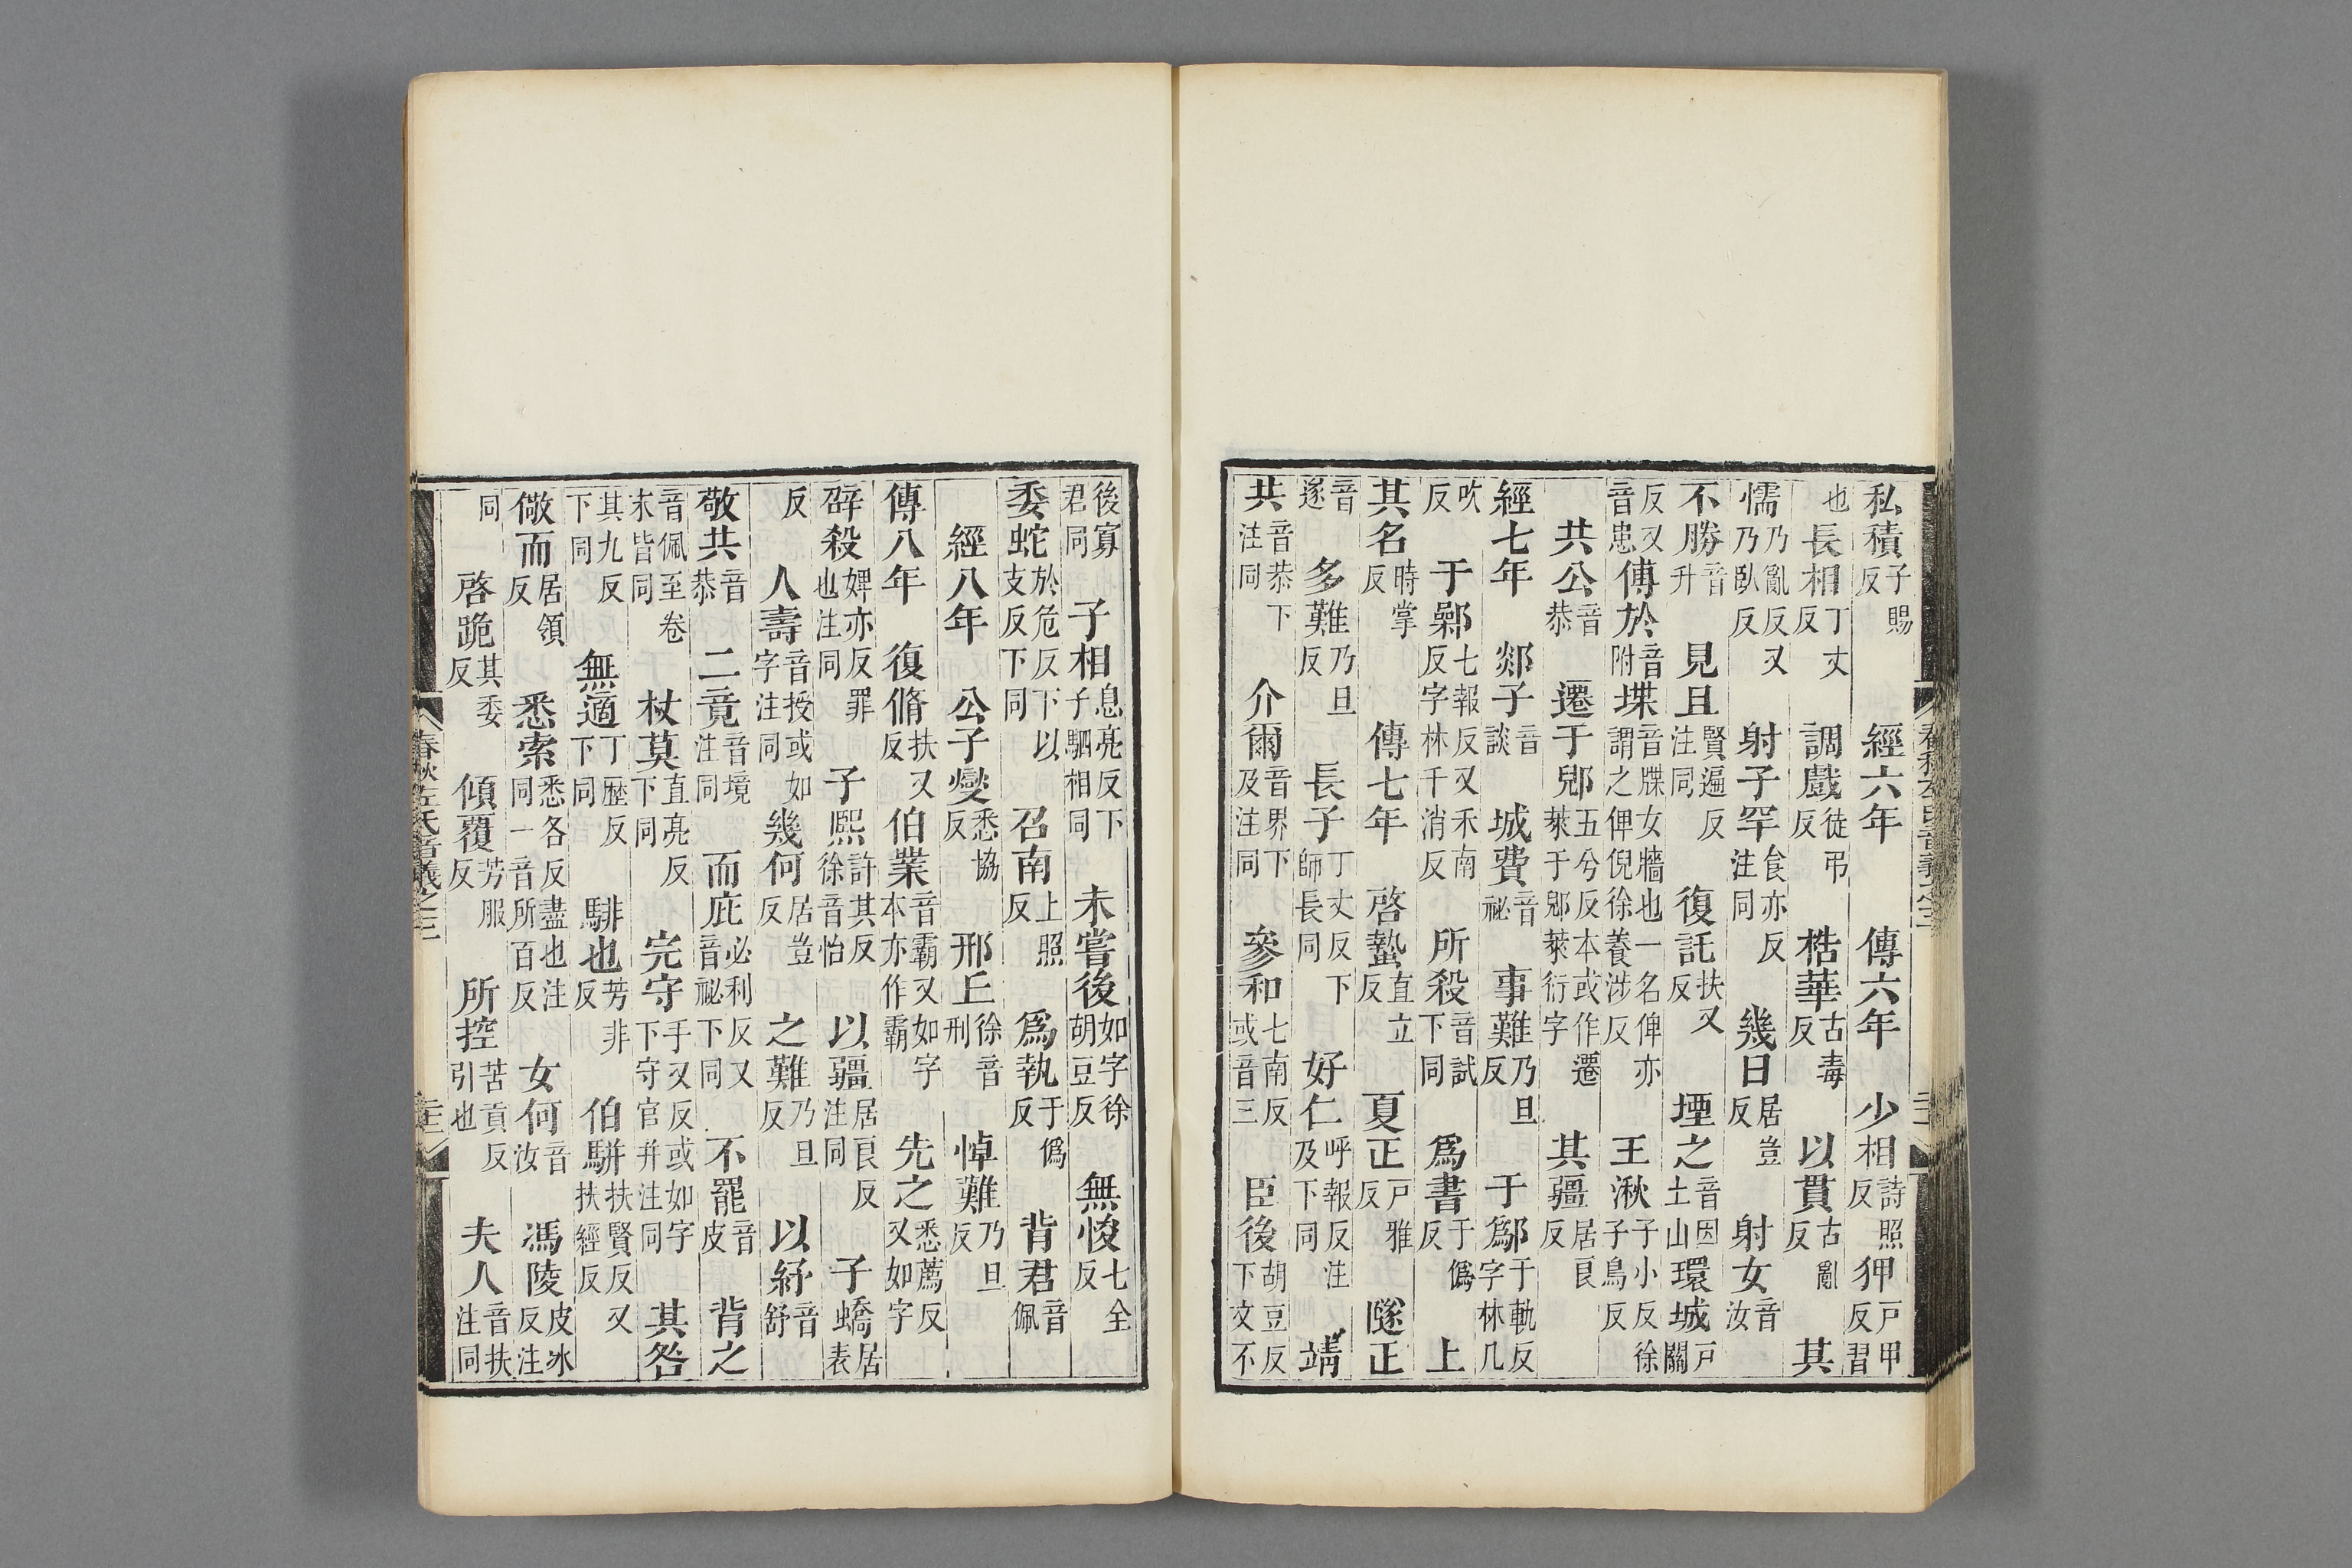 私積子賜反　經六年　傳六年　少相詩照反狎戶甲反習
也長相丁丈反　調戲徒弔反　梏華古毒反　以貫古亂反　其
懦乃亂反又乃臥反　射子罕食亦反注同　幾日居豈反　射女音汝
不勝音升　見且賢遍反注同　復託扶又反　堙之音因土山環城戶關
反又音患傅於音附堞音牒女牆也一名俾亦謂之俾倪徐養涉反　王湫子小反徐子鳥反
共公音恭　遷于郳五兮反本或作遷萊于郳萊衍字　其疆居良反
經七年　郯子音談　城費音祕　事難乃旦反　于鄬于軌反字林几
吹反　于鄵七報反又禾南反字林千消反　所殺音試下同　爲書于僞反　上
其名時掌反　傳七年　啓蟄直立反　夏正戶雅反　隧正
音遂　多難乃旦反　長子丁丈反下師長同　好仁呼報反注及下同　靖
共音恭下注同　介爾音界下及注同　參和七南反或音三　臣後胡豆反下文不
後寡君同　子相息亮反下子駟相同　未嘗後如字徐胡豆反　無悛七全反
委蛇於危反下以支反下同　召南上照反　爲執于僞反　背君音佩
經八年　公子燮悉協反　邢丘徐音刑　悼難乃旦反
傳八年　復脩扶又反伯業音霸又如字本亦作霸　先之悉薦反又如字
辟殺婢亦反罪也注同　子熙許其反徐音怡　以疆居良反注同　子蟜居表
反　人壽音授或如字注同　幾何居豈反　之難乃旦反　以紓音舒
敬共音恭　二竟音境注同　而庇必利反又音祕下同　不罷音皮　背之
音佩至卷末皆同　杖莫直亮反下同　完守手又反或如字下守官幷注同　其咎
其九反下同　無適丁歷反下同　騑也芳非反　伯駢扶賢反又扶經反
儆而居領反　悉索悉各反盡也注同一音所百反　女何音汝　馮陵皮冰反注
同　啓跪其委反　傾覆芳服反　所控苦貢反引也　夫人音扶注同
春秋左氏音義之三